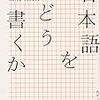 日本語
を
どう
書くか